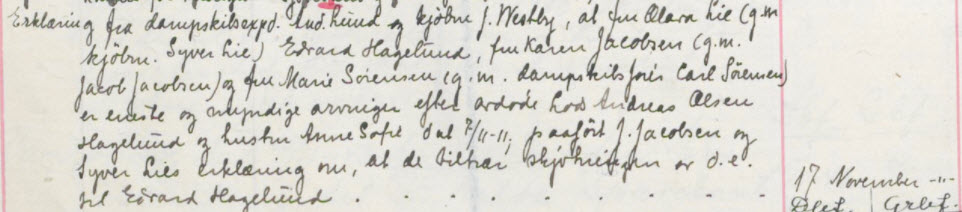 Erklæring fra dampskibsexpd. And. Lund og kjöbm. J. Westby, at fru Olava Lie (g.m.
kjöbm. Syver Lie) Edvard Hagelund, fru Karen Jacobsen (g.m.
Jacob Jacobsen) og fru Marie Sörensen (g.m. dampskibsförer Carl Sörensen)
er eneste og myndige arvinger efter avdöde lods Andreas Olsen
Hagelund og hustru Anne Sofie dat 7/11-11, paaført J. Jacobsen og
Syver Lies erklæring om, at de tiltrær skjötningen av d.e.
til Edvard Hagelund . . . . . . . . .
17 November -"-